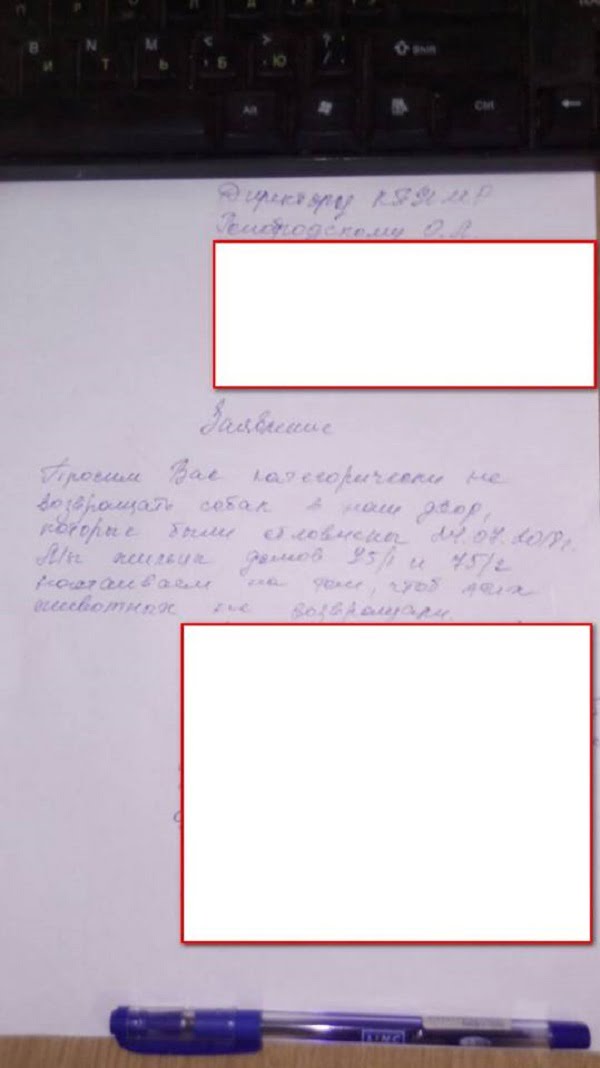 В И
N Т
M Ь
< , Б
> . Ю
? /
Shift
Alt
Ctrl
Директору
О.А.
Заявление
Просим Вас категорически не
возвращать собак в наш двор,
которые были отловлены 24.07.2018г.
Мы жильцы домов 75/1 и 75/2
настаиваем на том, чтоб этих
животных не возвращали.
LINC